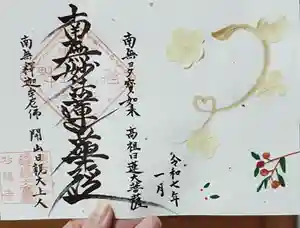 南無多宝如来 高祖日蓮大菩薩
南無妙法蓮華経
南無釈迦牟尼佛 開山日親大上人
令和七年
一月